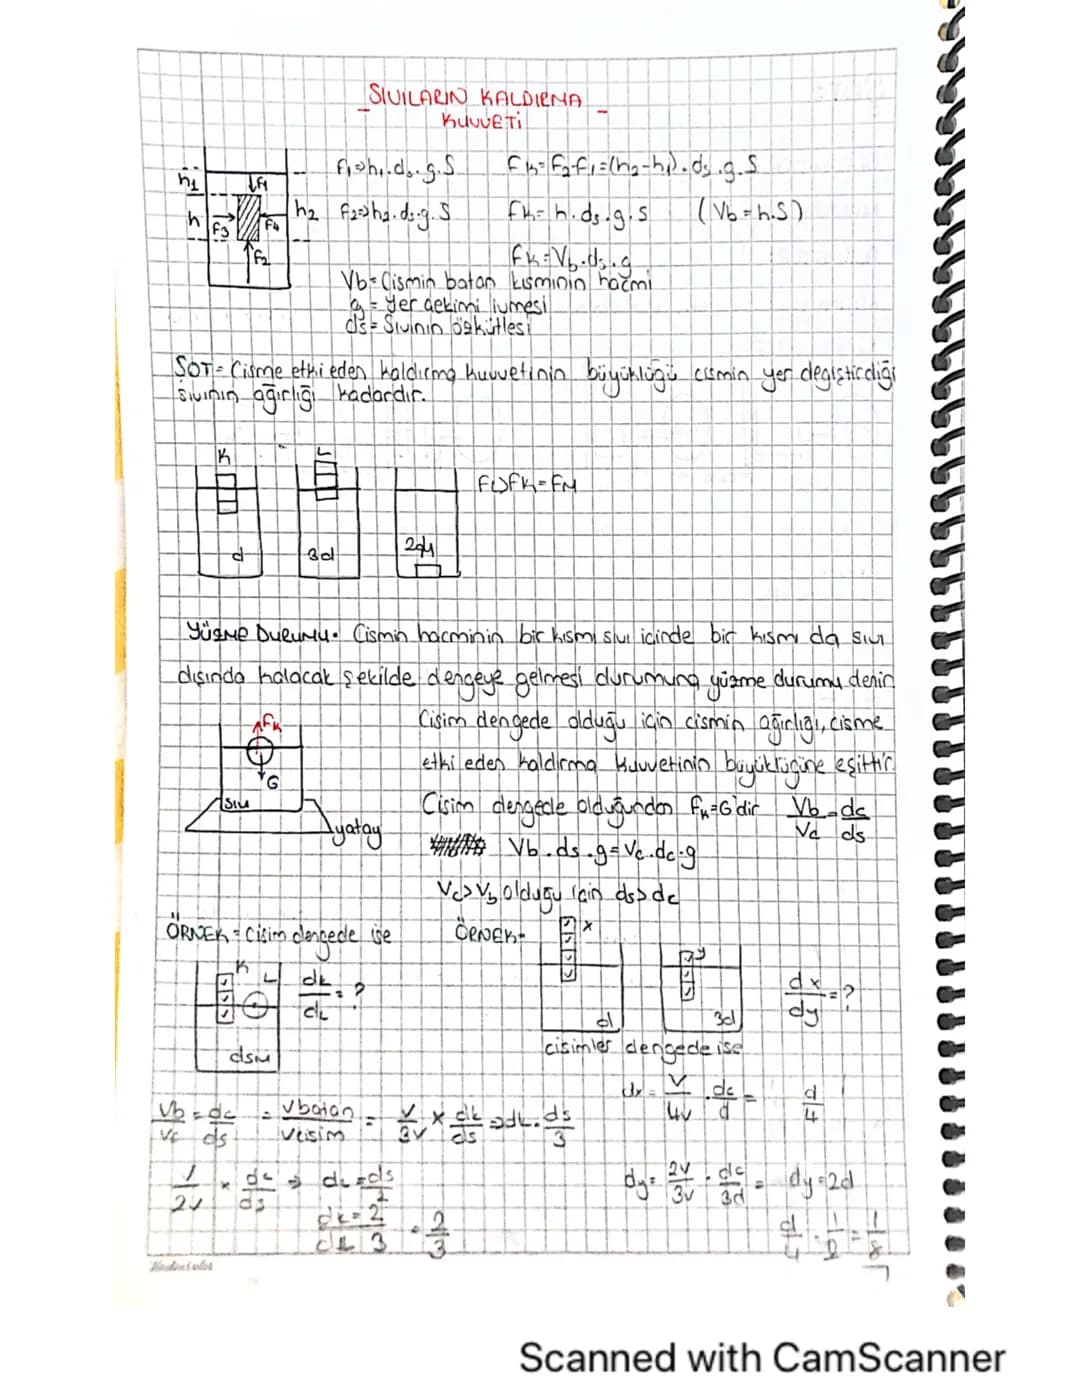 SIVILARIN KALDIRMA
KUVVETİ
h1
↓F1
h
F3
F4
h2
F2
F1⇒h1.ds.g.S
F2⇒h2.ds.g.S
Fk=F2-F1=(h2-h1).ds.g.S
Fk=h.ds.g.s (Vb=h.S)
Fk=Vb.ds.g
Vb=Cismin batan kısmının hacmi
g = Yer çekimi ivmesi
ds= Sıvının özkütlesi
SOT= Cisme etki eden kaldırma kuvvetinin büyüklüğü cismin yer değiştirdiği
sıvının ağırlığı kadardır.
K
L
d
3d
2d
FL>FK=FM
YÜZME DURUMU= Cismin hacminin bir kısmı sıvı içinde bir kısmı da sıvı
dışında kalacak şekilde dengeye gelmesi durumuna yüzme durumu denir
Cisim dengede olduğu için cismin ağırlığı, cisme
etki eden kaldırma kuvvetinin büyüklüğüne eşittir
Fk
G
sıvı
yatay
Cisim dengede olduğundan Fk=G'dir Vb/Vc=dc/ds
Vb.ds.g=Vc.dc.g
Vc>Vb olduğu için ds>dc
ÖRNEK= Cisim dengede ise
K
L
dk/dL=?
dsıvı
ÖRNEK=
x
y
d
3d
dx/dy=?
cisimler dengede ise
Vb/Vc=dc/ds = Vbatan/Vcisim = V/3V x dk/ds ⇒dk.ds/3
1/2V x dc/ds ⇒ dL=ds/2
dk/dL=2/3 = 2/3
dx=V/4V.dc/d= d/4
dy=2V/3V.dc/3d= dy=2d
d/4.1/2=1/8
Scanned with CamScanner